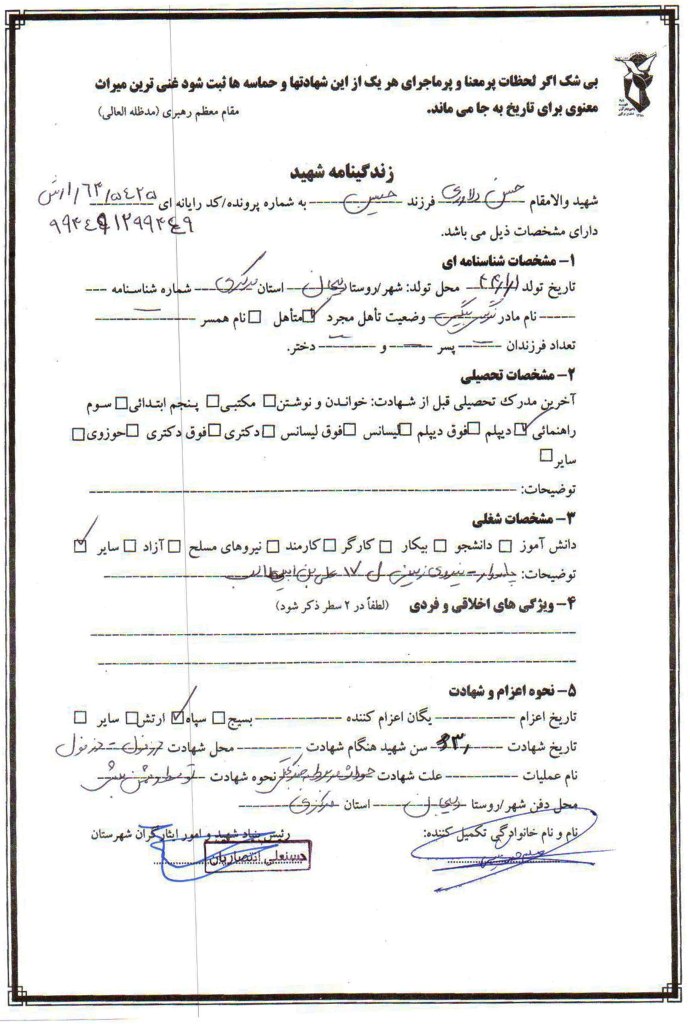 بی شک اگر لحظات پرمعنا و پرماجرای هر یک از این شهادتها و حماسه ها ثبت شود غنی ترین میراث
معنوی برای تاریخ به جا می ماند. مقام معظم رهبری (مدظله العالی)
زندگینامه شهید
شهید والامقام حسن دلاوری فرزند حسین به شماره پرونده/کد رایانه ای
دارای مشخصات ذیل می باشد.
۱- مشخصات شناسنامه ای
تاریخ تولد محل تولد: شهر/روستا ریحان استان مرکزی شماره شناسنامه
نام مادر نرگس بیگم وضعیت تأهل مجرد متأهل نام همسر
تعداد فرزندان پسر و دختر.
۲- مشخصات تحصیلی
آخرین مدرک تحصیلی قبل از شهادت: خواندن و نوشتن مکتبی پنجم ابتدائی سوم
راهنمائی دیپلم فوق دیپلم لیسانس فوق لیسانس دکتری فوق دکتری حوزوی
سایر
توضیحات:
۳- مشخصات شغلی
دانش آموز دانشجو بیکار کارگر کارمند نیروهای مسلح آزاد سایر
توضیحات: پاسدار - نیروی زمینی ل ۱۷ علی بن ابیطالب
۴- ویژگی های اخلاقی و فردی (لطفاً در ۲ سطر ذکر شود)
۵- نحوه اعزام و شهادت
تاریخ اعزام یگان اعزام کننده بسیج سپاه ارتش سایر
تاریخ شهادت سن شهید هنگام شهادت محل شهادت دزفول - دزفول
نام عملیات علت شهادت حوادث مربوط به جنگ نحوه شهادت توسط دشمن بعثی
محل دفن شهر/روستا ریحان استان مرکزی
نام و نام خانوادگی تکمیل کننده: رئیس بنیاد شهید و امور ایثارگران شهرستان
حسنعلی انتصاریان